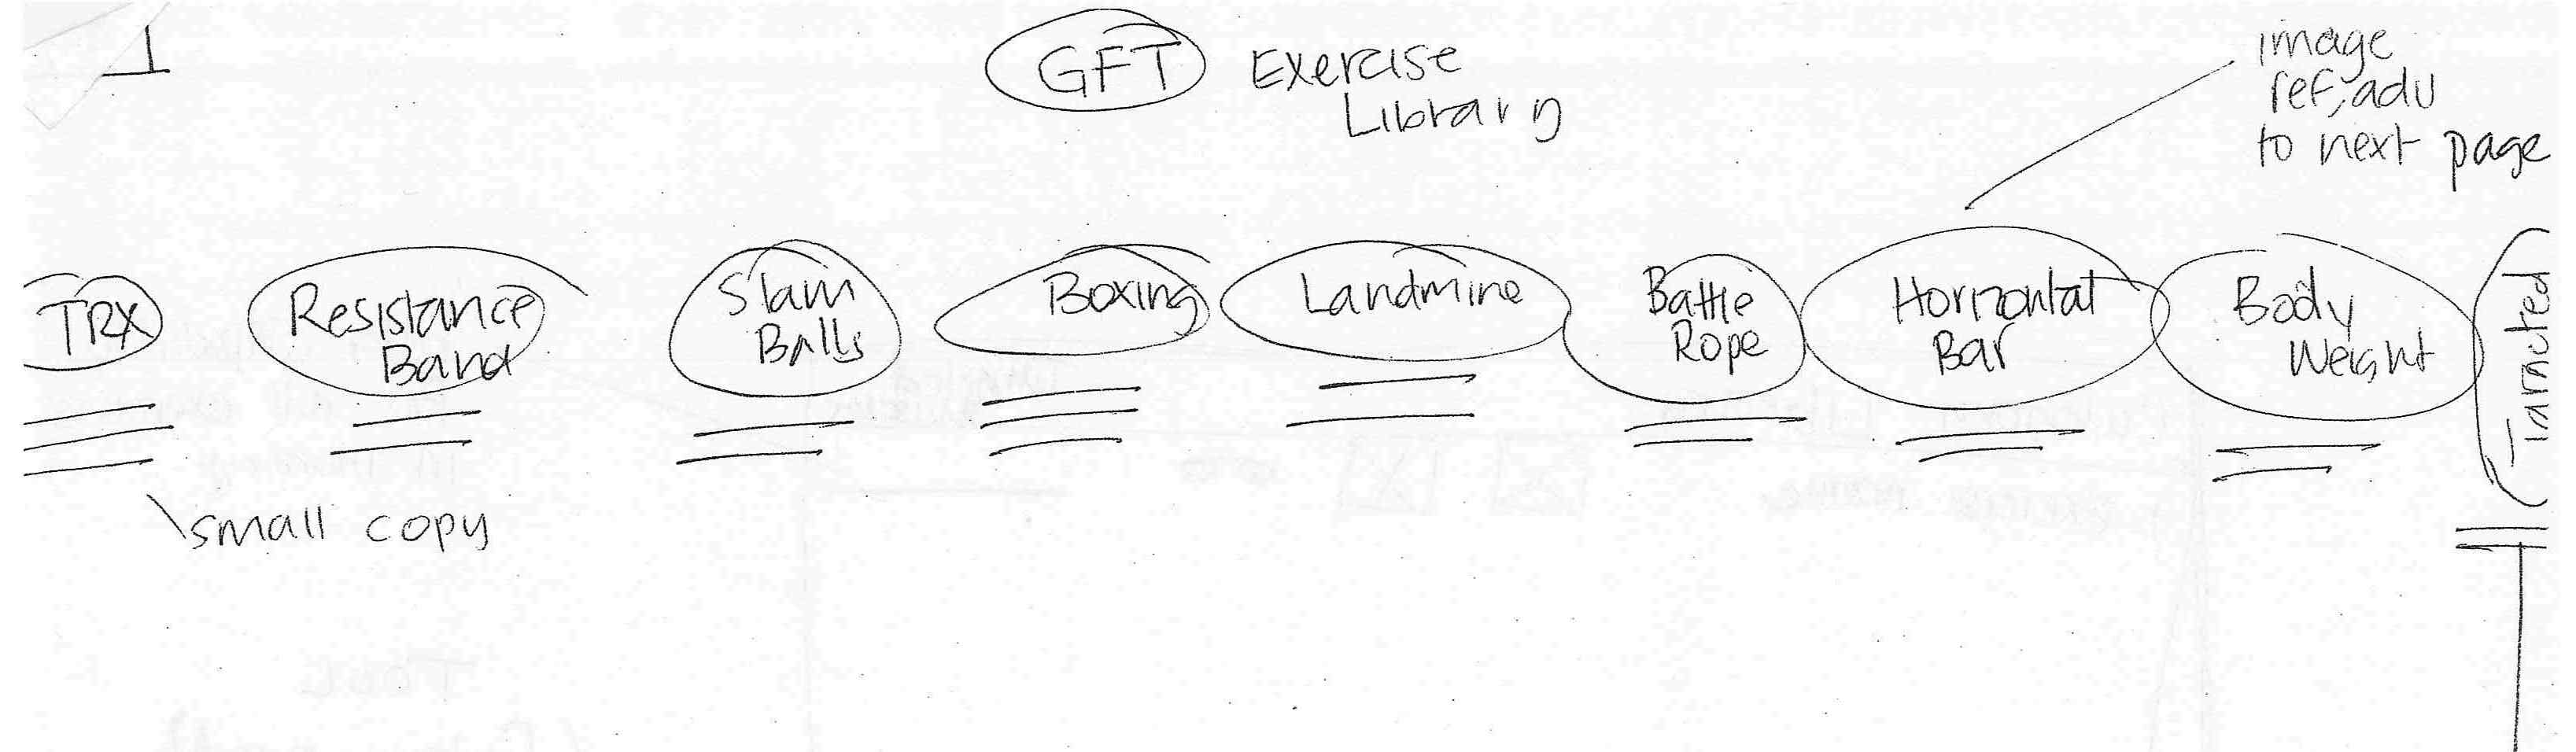 1
GFT Exercise
Library
image
ref, adv
to next page
TRX
Resistance
Band
Slam
Balls
Boxing
Landmine
Battle
Rope
Horizontal
Bar
Body
Weight
small copy